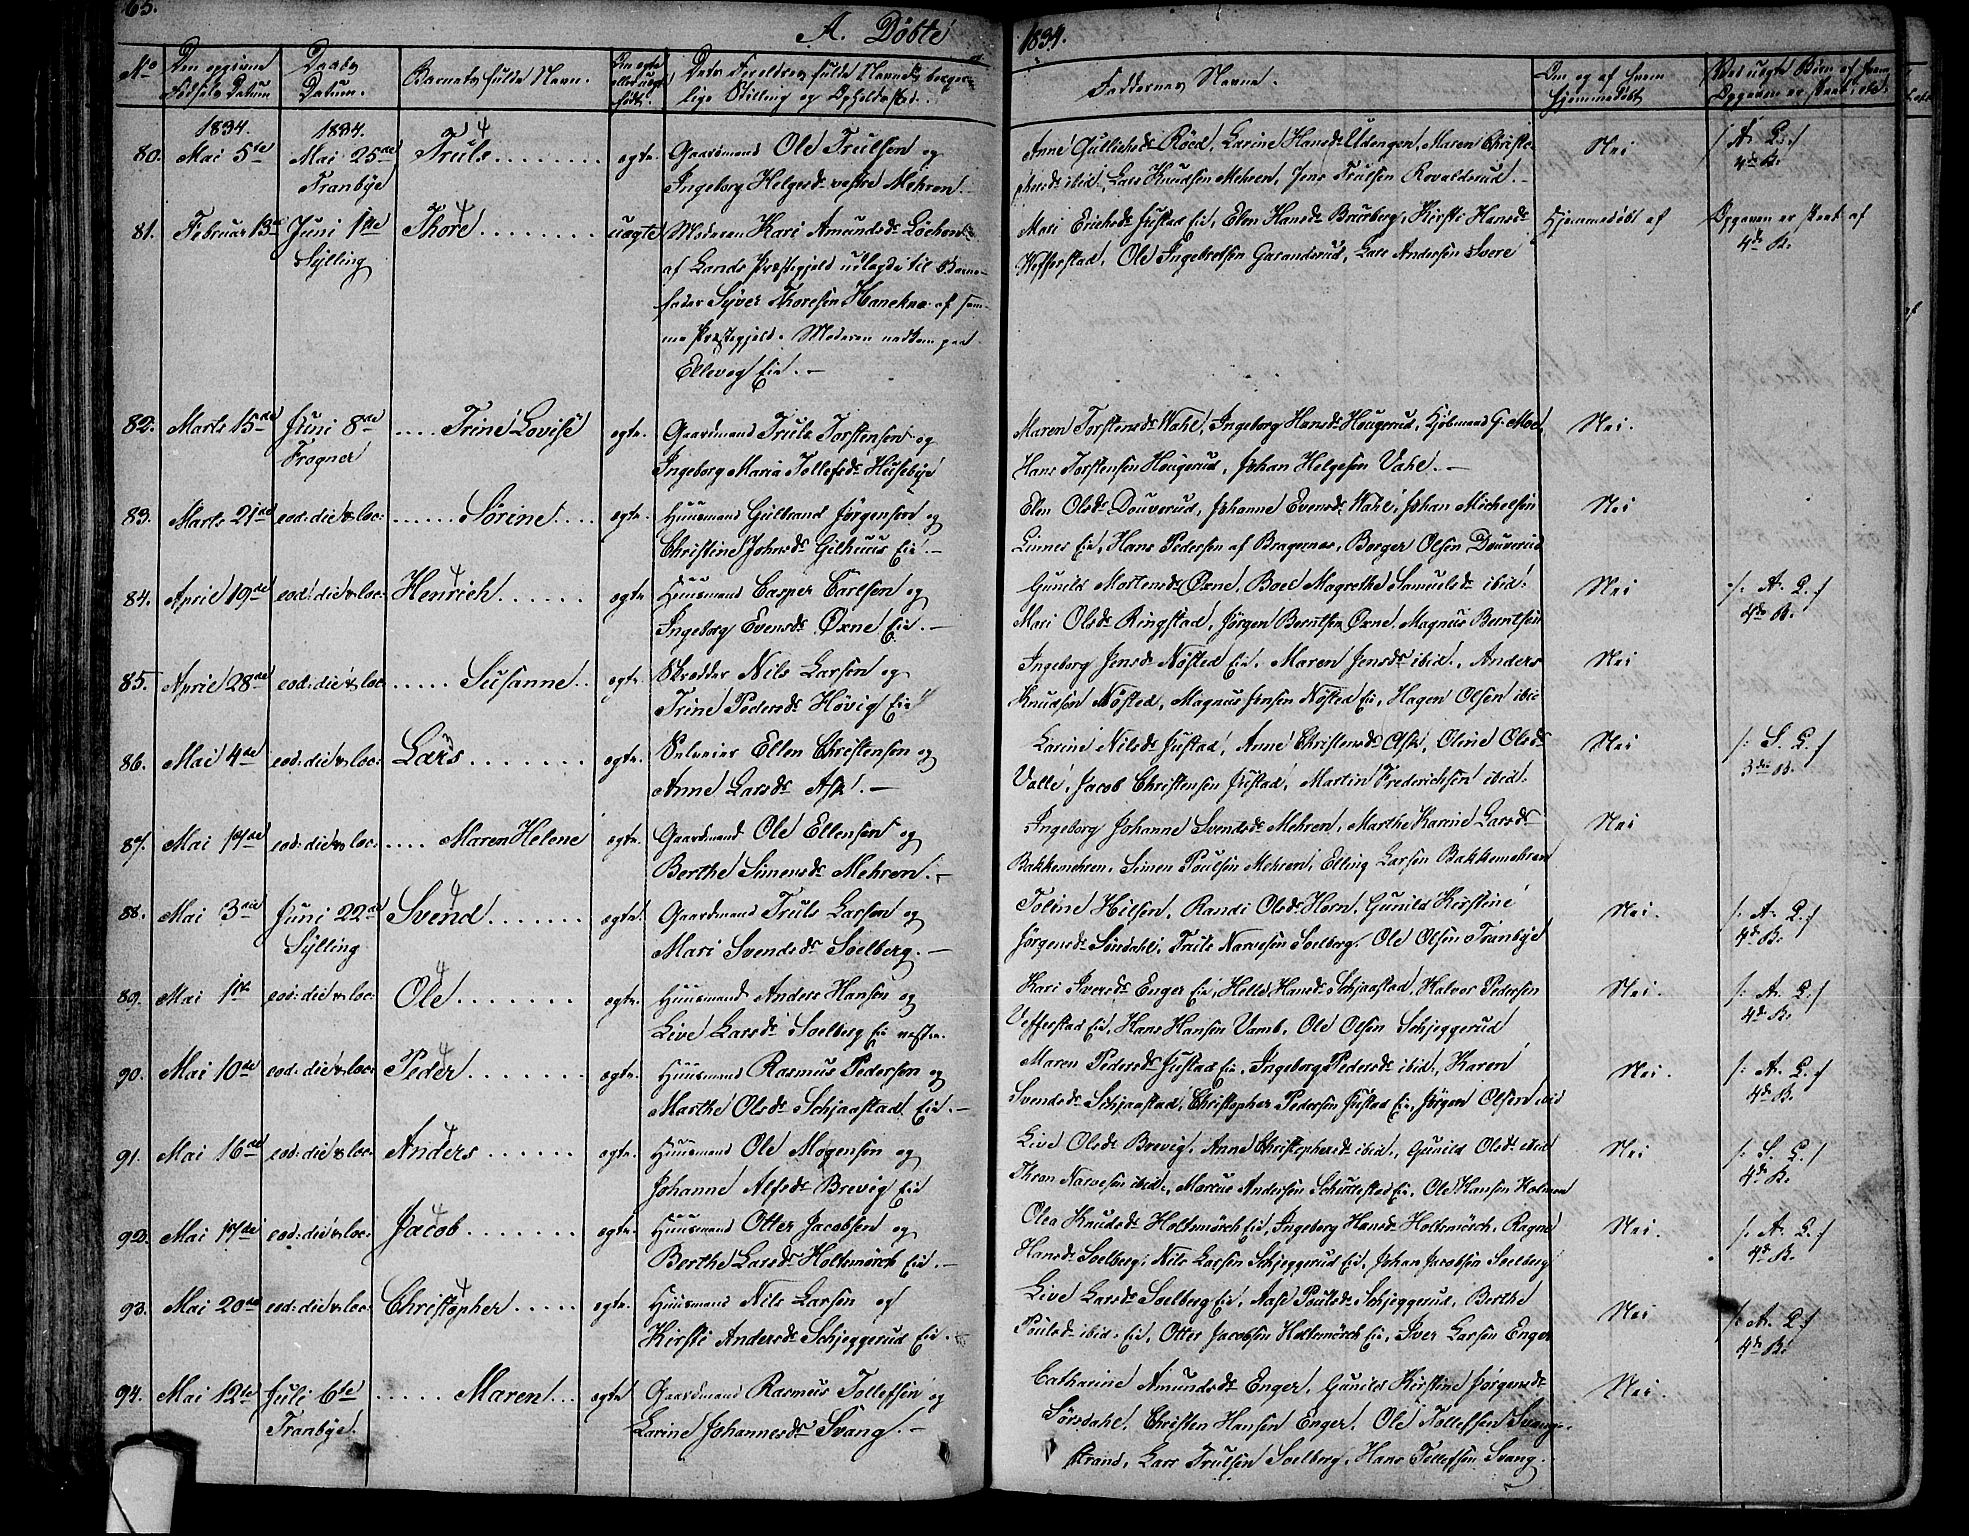 65.
A. Döbte 1834.
No
Den opgivne
Fødsels Datum
Daabs
Datum.
Barnets fulde Navn.
Om ægte
eller uægte
født.
Dets Forældres fulde Navne, borger-
lige Stilling og Opholdssted.
Faddernes Navne.
Om og af hvem
hjemmedøbt
Ved uægte Børn af hvem
Opgaven er skeet, etc.
1834. 1834.
80. Mai 5te Mai 25de Truls ægte Gaardmand Ole Trulsen og
Tranbye Ingeborg Helgesdr vestre Mehren
Anne Gulliksdr Röed, Karine Hansdr Udengen, Maren Christo-
phersdr ibid., Lars Knudsen Mehren, Jens Trulsen Rovaldsrud.
Nei /: A. L. :/
4de B.
81. Februar 13de Juni 1ste Thore uægte Moderen Kari Amundsdr
Sylling af Lands Præstegjeld udlagde til Barne-
fader Syver Thoresen Hanekne af sam-
me Præstegjeld. Moderen nedkom paa
Ellevog Eie.
Mari Erichsdr Justad Eie, Elen Hansdr Baurberg, Kirsti Hansdr
Vefferstad, Ole Ingebretsen Garandsrud, Lars Andersen Svere
Hjemmedöbt af Opgaven er skeet af
4de B.
82. Marts 15de Juni 8de Trine Lovise ægte Gaardmand Truls Torstensen og
Frogner Ingeborg Maria Tollefsdr Husebye
Maren Torstensdr Wahl, Ingeborg Hansdr Hougerud, Kjøbmand G. Moe,
Hans Torstensen Hougerud, Johan Helgesen Vahl.
Nei.
83. Marts 21de eod: die & loc: Sörine ægte Huusmand Gulbrand Jörgensen og
Christine Johnsdr Gilhuus Eie.
Elen Olsdr Douverud, Johanne Evensdr Wahl, Johan Michelsen
Linnes Eie, Hans Pedersen af Bragernes, Borger Olsen Douverud
Nei
84. April 19de eod: die & loc: Henrich ægte Huusmand Casper Carlsen og
Ingeborg Evensdr Øxne Eie.
Gunild Mortensdr Øxne, Boel Magrethe Samuelsdr ibid:
Mari Olsdr Ringstad, Jörgen Berntsen Øxne, Magnus Berntsen
Nei /: A. L. :/
4de B.
85. April 28de eod: die & loc Susanne ægte Skrædder Nils Larsen og
Trine Pedersdr Hövig Eie
Ingeborg Jensdr Nøsted Eie, Maren Jensdr ibid., Anders
Knudsen Nøsted, Magnus Jensen Nøsted Eie, Hagen Olsen ibid
Nei
86. Mai 4de eod: die & loc: Lars ægte Selveier Ellen Christensen og
Anne Larsdr Ask.
Karine Nilsdr Justad, Anne Christensdr Ask, Oline Olsdr
Valle, Jacob Christensen Justad, Martin Frederichsen ibid:
Nei /: S. L. :/
3die B.
87. Mai 17de eod: die & loc: Maren Helene ægte Gaardmand Ole Ellensen og
Berthe Simensdr Mehren.
Ingeborg Johanne Svendsdr Mehren, Marthe Karine Larsdr
Bakkemehren, Simen Poulsen Mehren, Elling Larsen Bakkemehren
Nei
88. Mai 3die Juni 22de Svend ægte. Gaardmand Truls Larsen og
Sylling Mari Svendsdr Soelberg.
Toline Hilsen, Randi Olsdr Horn, Gunild Kirstine
Jörgensdr Sørsdahl, Truls Narvesen Soelberg, Ole Olsen Tranbye
Nei. /: A. L. :/
4de B.
89. Mai 1ste eod: die & loc: Ole ægte. Huusmand Anders Hansen og
Live Larsdr Soelberg Eie vestre.
Kari Iversdr Enger Eie, Helle Hansdr Schjaastad, Halvor Pedersen
Vefferstad Eie, Hans Hansen Vamb, Ole Olsen Schjeggerud
Nei. /: A. L. :/
4de B.
90. Mai 10de eod: die & loc: Peder ægte Huusmand Rasmus Pedersen og
Marthe Olsdr Schjaastad Eie.
Maren Pedersdr Justad Eie, Ingeborg Pedersdr ibid., Karen
Svendsdr Schjaastad, Christopher Pedersen Justad Eie, Jörgen Olsen ibid
Nei. /: A. L. :/
4de B.
91. Mai 16de eod: die & loc: Anders ægte. Huusmand Ole Mogensen og
Johanne Alfsdr Brevig Eie
Live Olsdr Brevig, Anne Christophersdr ibid., Gunild Olsdr ibid
Thron Narvesen ibid., Marcus Andersen Schuttestad Eie, Ole Hansen Holmen
Nei /: S. L. :/
4de B.
92. Mai 17de eod: die & loc: Jacob ægte. Huusmand Otter Jacobsen og
Berthe Larsdr Holtsmörch Eie.
Olea Knudsdr Holtsmörch Eie, Ingeborg Hansdr Holtsmörch, Ragne
Hansdr Soelberg, Nils Larsen Schjeggerud Eie, Johan Jacobsen Soelberg
Nei. /: A. L. :/
4de B.
93. Mai 20de eod: die & loc: Christopher ægte. Huusmand Nils Larsen og
Kirsti Andersdr Schjeggerud Eie.
Live Larsdr Soelberg Eie, Aase Poulsdr Schjeggerud, Berthe
Poulsdr ibid: Eie, Otter Jacobsen Holtsmörch Eie, Iver Larsen Enger
Nei /: A. L. :/
4de B.
94. Mai 12te Juli 6te Maren ægte Gaardmand Rasmus Tollefsen og
Tranbye. Karine Johannesdr Svang.
Cathrine Amundsdr Enger, Gunild Kirstine Jörgensdr
Sørsdahl, Christen Hansen Enger, Ole Tollefsen Svang-
strand, Lars Trulsen Soelberg, Hans Tollefsen Svang.
Nei.